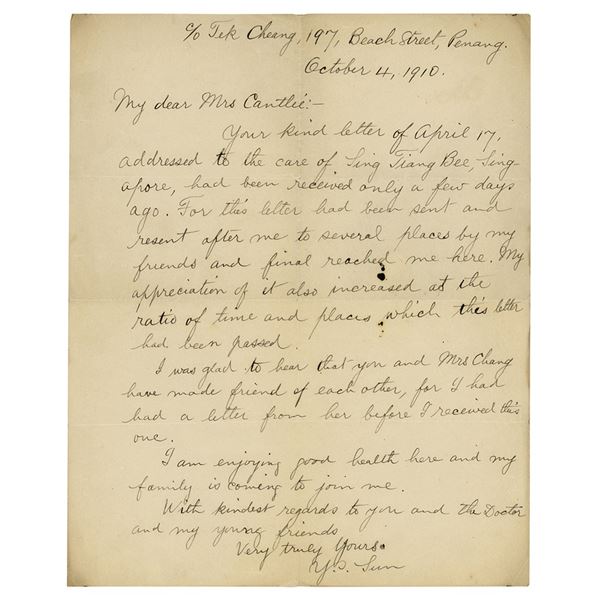 c/o Tek Cheang, 197, Beach Street, Penang.
October 4, 1910.
My dear Mrs Cantlie:-
Your kind letter of April 17,
addressed to the care of Sing Tiang Bee, Sing-
apore, had been received only a few days
ago. For this letter had been sent and
resent after me to several places by my
friends and final reached me here. My
appreciation of it also increased at the
ratio of time and places which this letter
had been passed.
I was glad to hear that you and Mrs Chang
have made friend of each other, for I had
had a letter from her before I received this
one.
I am enjoying good health here and my
family is coming to join me.
With kindest regards to you and the Doctor
and my young friends
Very truly Yours.
Y.S. Sun